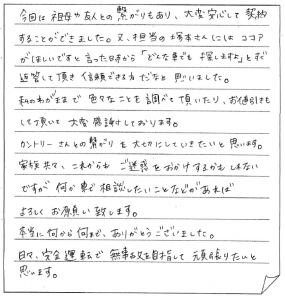 今回は祖母や友人との繋がりもあり、大変安心して契約
することができました。又、担当の塚本さんには ココア
がほしいですと言った日から「どんな車でも探しますよ」とすぐ
返答して頂き信頼できる方だなと思いました。
私のわがままで色々なことを調べて頂いたり、お値引きも
して頂いて大変感謝しております。
カントリーさんとの繋がりを大切にしていきたいと思います。
家族共々、これからもご迷惑をおかけするかもしれない
ですが何か車で相談したいことなどがあれば
よろしくお願い致します。
本当に何から何まで、ありがとうございました。
日々、安全運転で無事故を目指して頑張りたいと
思います。